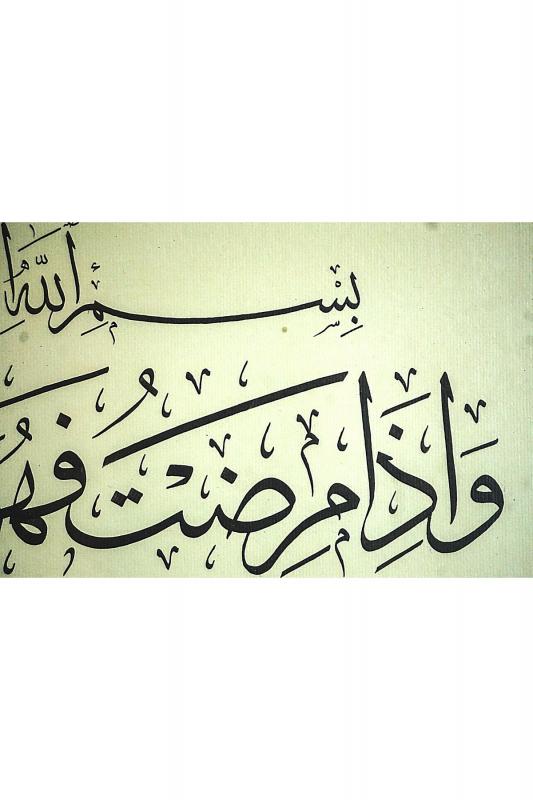 بِسْمِ اللّٰهِ
وَاِذَا مَرِضْتُ فَهُوَ